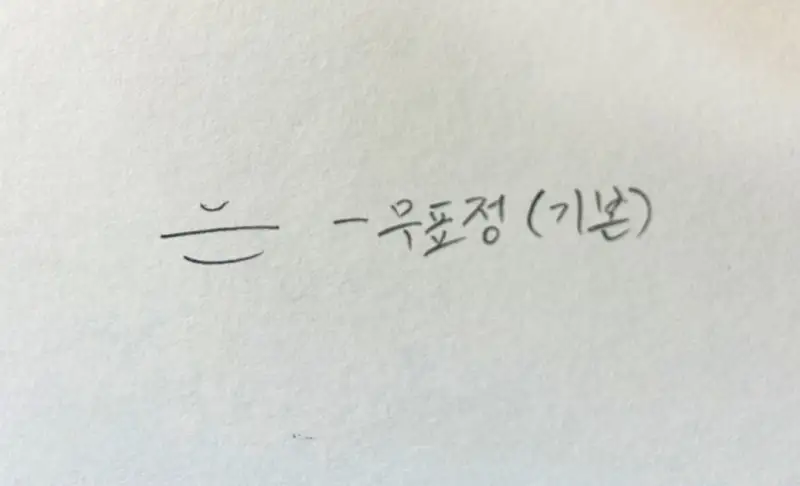 - 무표정 (기본)